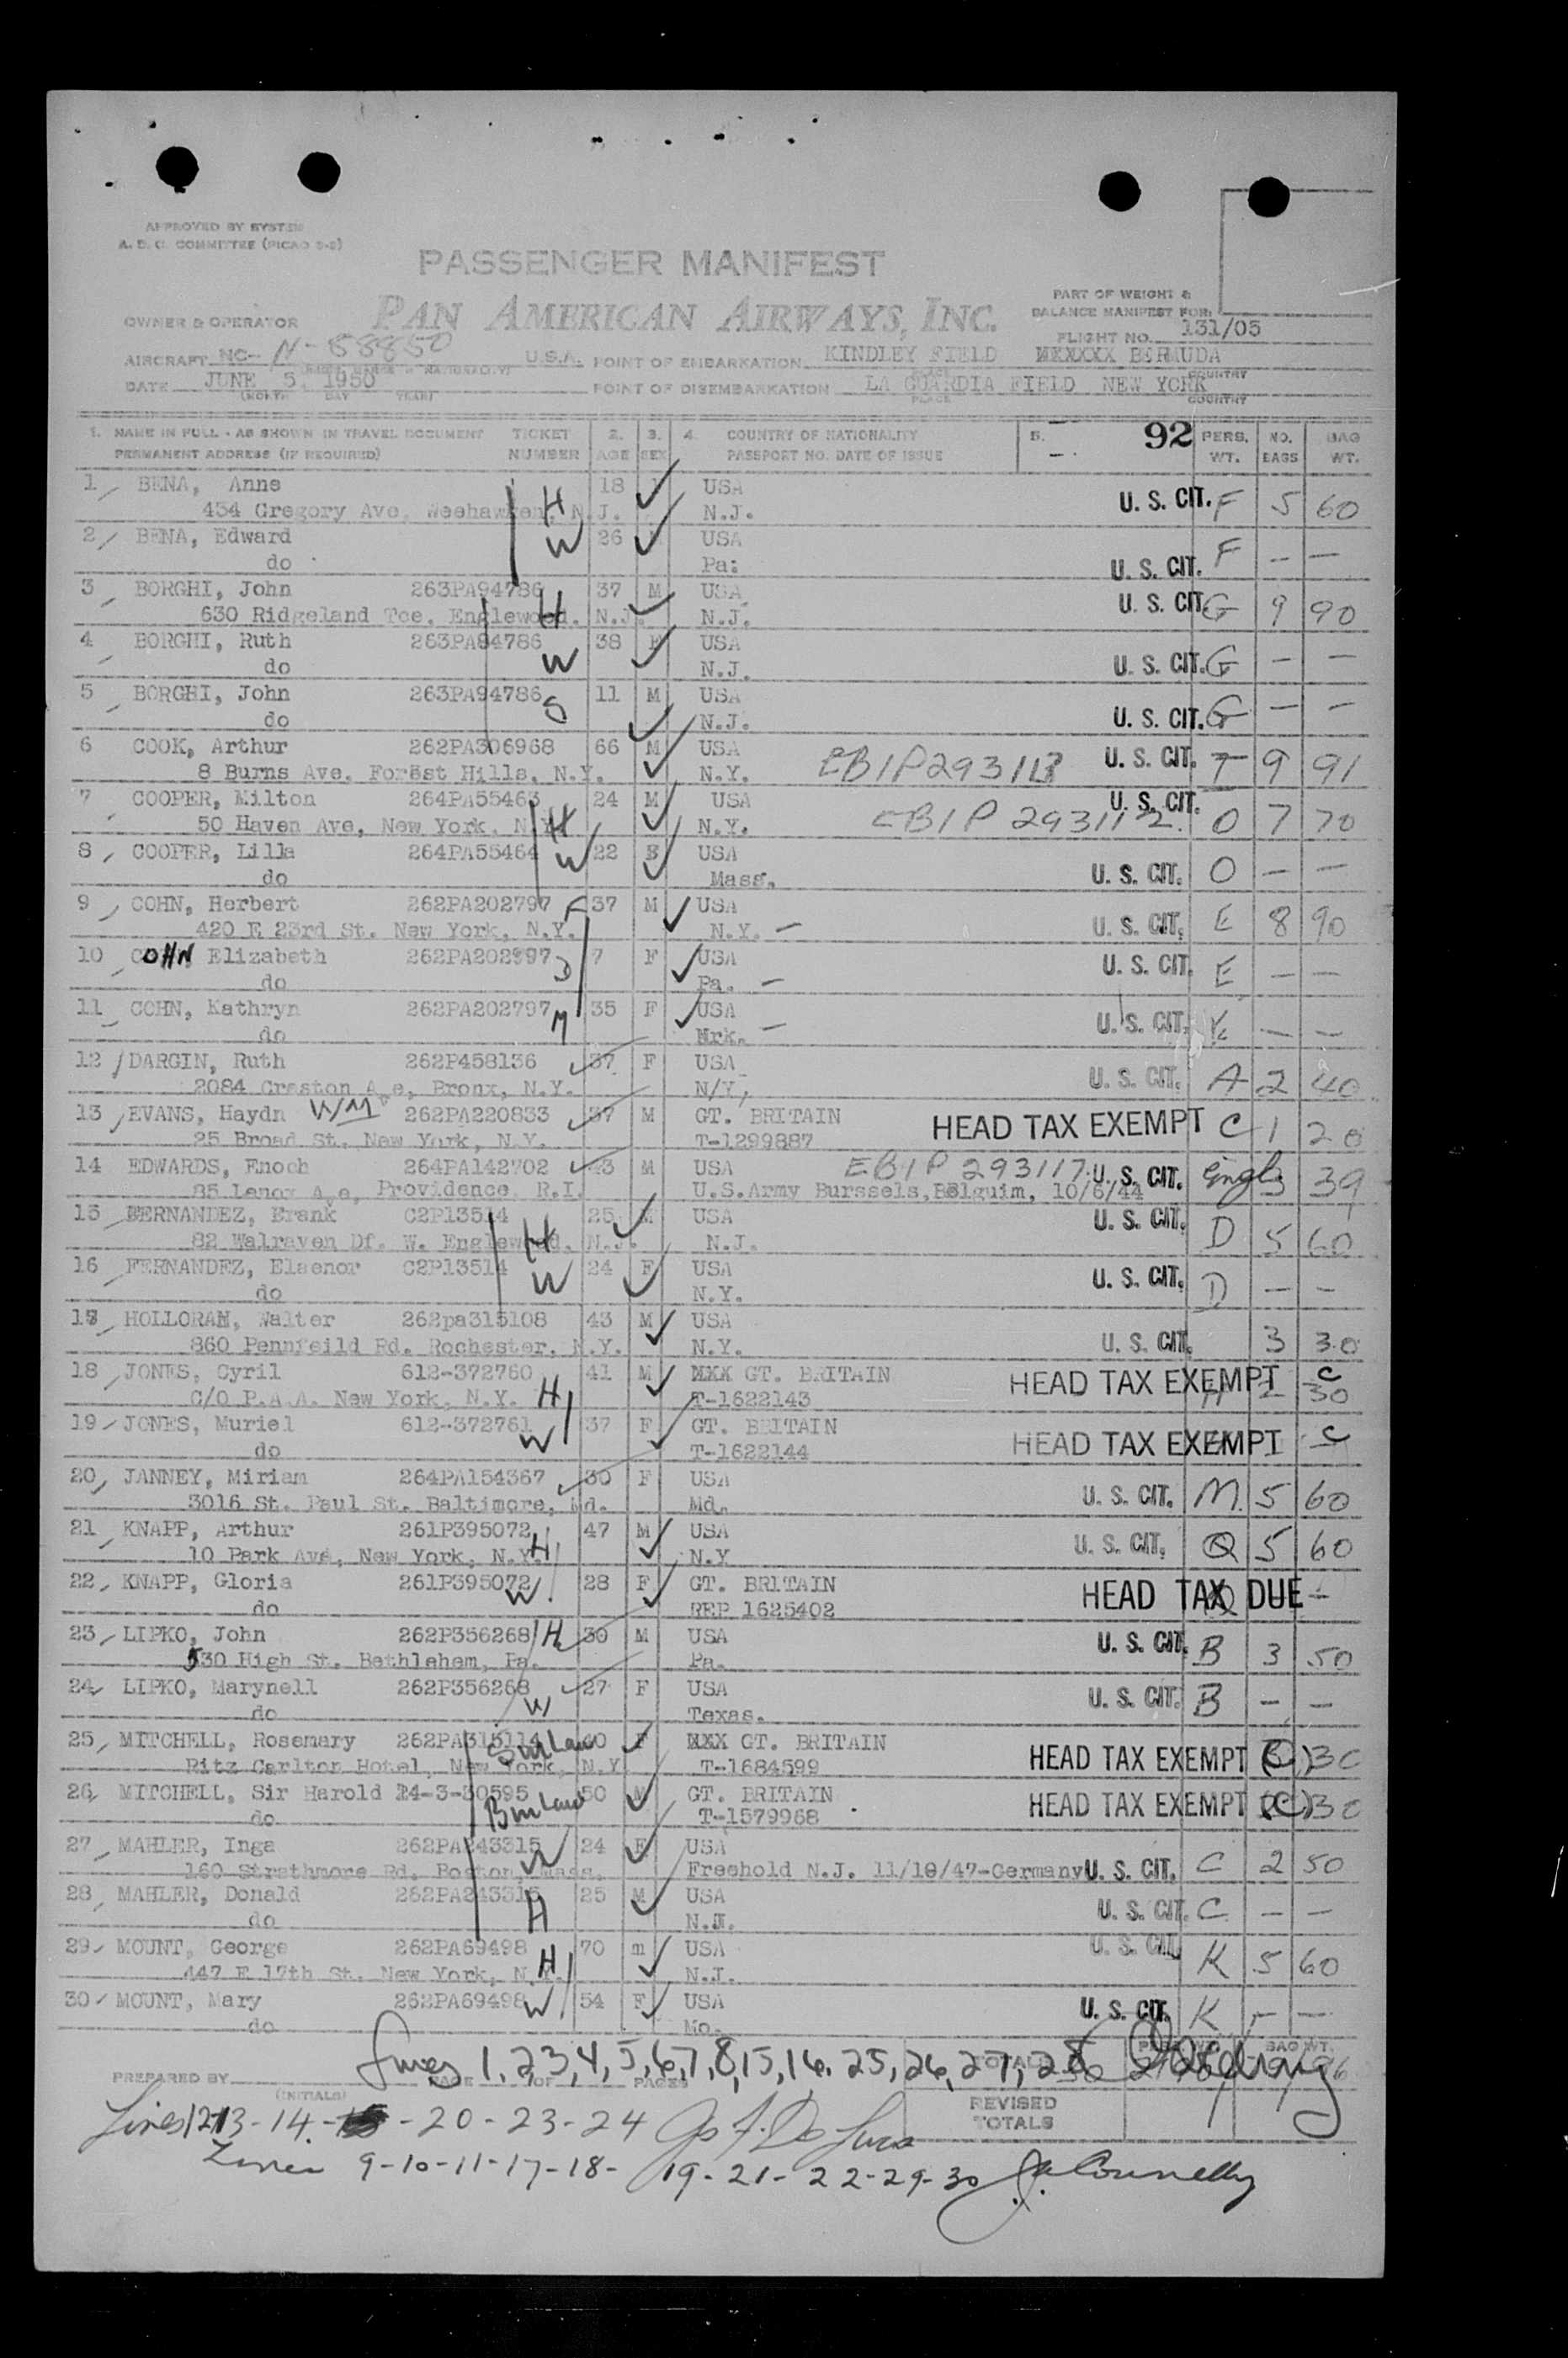 APPROVED BY SYSTEM
A. D. C. COMMITTEE (PICAO 2-2)
PASSENGER MANIFEST
PAN AMERICAN AIRWAYS, INC.
PART OF WEIGHT &
BALANCE MANIFEST FOR:
OWNER & OPERATOR
FLIGHT NO. 131/05
AIRCRAFT NC- N-88850 U.S.A. POINT OF EMBARKATION KINDLEY FIELD BERMUDA
PLACE COUNTRY
DATE JUNE 5, 1950 POINT OF DISEMBARKATION LA GUARDIA FIELD NEW YORK
(MONTH DAY YEAR) PLACE COUNTRY
1. NAME IN FULL - AS SHOWN IN TRAVEL DOCUMENT TICKET 2. 3. 4. COUNTRY OF NATIONALITY 5. 92 PERS. NO. BAG
PERMANENT ADDRESS (IF REQUIRED) NUMBER AGE SEX PASSPORT NO. DATE OF ISSUE WT. BAGS WT.
1 BENA, Anne H 18 USA
454 Gregory Ave, Weehawken, N.J. N.J. U. S. CIT. F 5 60
2 BENA, Edward W 26 USA
do Pa: U. S. CIT. F — —
3 BORGHI, John 263PA94786 37 M USA
630 Ridgeland Tce, Englewood, N.J. H N.J. U. S. CIT. G 9 90
4 BORGHI, Ruth 263PA94786 38 F USA
do W N.J. U. S. CIT. G — —
5 BORGHI, John 263PA94786 11 M USA
do S N.J. U. S. CIT. G — —
6 COOK, Arthur 262PA306968 66 M USA
8 Burns Ave. Forest Hills, N.Y. N.Y. U. S. CIT. 9 91
7 COOPER, Milton 264PA55463 24 M USA
50 Haven Ave, New York, N.Y. H N.Y. EB1P 293112 U. S. CIT. O 7 70
8 COOPER, Lilla 264PA55464 W 22 USA
do Mass. U. S. CIT. O — —
9 COHN, Herbert 262PA202797 F 37 M USA
420 E 23rd St. New York, N.Y. N.Y. — U. S. CIT. E 8 90
10 COHN Elizabeth 262PA202797 D 7 F USA
do Pa. — U. S. CIT. E — —
11 COHN, Kathryn 262PA202797 M 35 F USA
do Nrk. — U. S. CIT. — —
12 DARGIN, Ruth 262P458136 37 F USA
2084 Craston Ave, Bronx, N.Y. N/Y, U. S. CIT. A 2 40
13 EVANS, Haydn WM 262PA220833 37 M GT. BRITAIN
25 Broad St. New York, N.Y. T-1299887 HEAD TAX EXEMPT C 1 20
14 EDWARDS, Enoch 264PA142702 43 M USA EB1P 293117
85 Lenox Ave, Providence, R.I. U.S.Army Burssels, Belguim, 10/6/44 U. S. CIT. 3 39
15 FERNANDEZ, Frank C2P13514 25 M USA
82 Walraven Df. W. Englewood, N.J. H N.J. U. S. CIT. D 5 60
16 FERNANDEZ, Elaenor C2P13514 W 24 F USA
do N.Y. U. S. CIT. D — —
17 HOLLORAN, Walter 262pa315108 43 M USA
860 Pennfeild Rd. Rochester, N.Y. N.Y. U. S. CIT. 3 30
18 JONES, Cyril 612-372760 41 M XXX GT. BRITAIN
C/O P.A.A. New York, N.Y. H T-1622143 HEAD TAX EXEMPT C 2 30
19 JONES, Muriel 612-372761 37 F GT. BRITAIN
do W T-1622144 HEAD TAX EXEMPT C
20 JANNEY, Miriam 264PA154367 30 F USA
3016 St. Paul St. Baltimore, Md. Md. U. S. CIT. M 5 60
21 KNAPP, Arthur 261P395072 47 M USA
10 Park Ave, New York, N.Y. H N.Y U. S. CIT. Q 5 60
22 KNAPP, Gloria 261P395072 W 28 F GT. BRITAIN
do REP 1625402 HEAD TAX DUE
23 LIPKO, John 262P356268 H 30 M USA
530 High St. Bethlehem, Pa. Pa. U. S. CIT. B 3 50
24 LIPKO, Marynell 262P356268 W 27 F USA
do Texas. U. S. CIT. B — —
25 MITCHELL, Rosemary 262PA315114 F XXX GT. BRITAIN
Ritz Carlton Hotel, New York, N.Y T-1684599 HEAD TAX EXEMPT (C) 30
26 MITCHELL, Sir Harold 14-3-30595 50 M GT. BRITAIN
do T-1579968 HEAD TAX EXEMPT (C) 30
27 MAHLER, Inga 262PA243315 W 24 F USA
160 Strathmore Rd. Boston, Mass. Freehold N.J. 11/18/47-Germany U. S. CIT. C 2 50
28 MAHLER, Donald 262PA243315 25 M USA
do H N.J. U. S. CIT. C — —
29 MOUNT, George 262PA69498 70 m USA
447 E 17th St. New York, N.Y. H N.J. U. S. CIT. K 5 60
30 MOUNT, Mary 262PA69498 W 54 F USA
do Mo. U. S. CIT. K — —
Lines 1, 2, 3, 4, 5, 6, 7, 8, 15, 16, 25, 26, 27, 28
PREPARED BY (INITIALS) PAGE OF PAGES TOTALS BAG WT.
REVISED
TOTALS
Lines 12 13 - 14 - 20 - 23 - 24
Lines 9-10-11-17-18- 19-21-22-29-30 Connelly